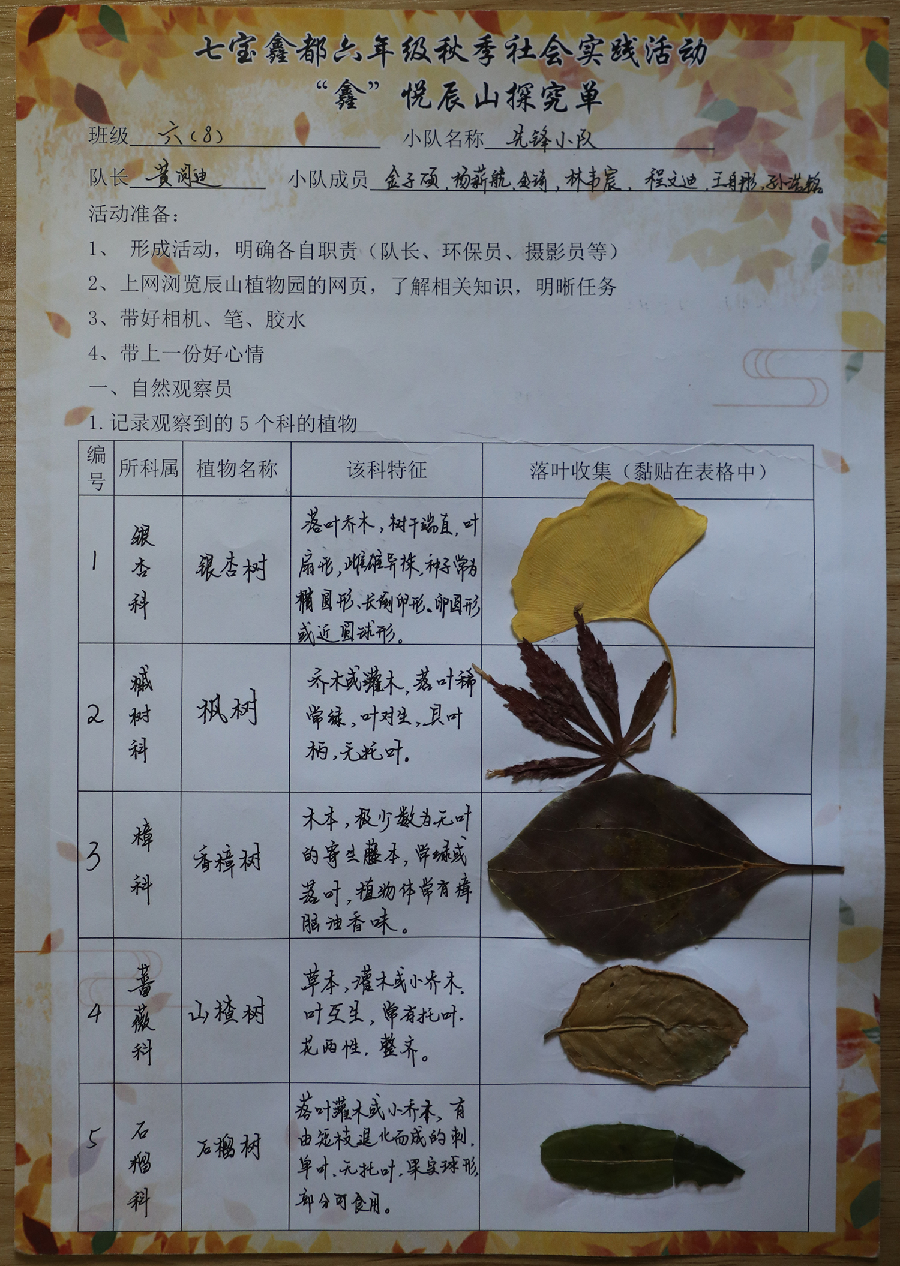 七宝鑫都六年级秋季社会实践活动
“鑫”悦辰山探究单
班级 六(8) 小队名称 先锋小队
队长 黄润迪 小队成员 金子硕,杨薪航,金琦,林韦宸,程文迪 王月彤,孙浩铭
活动准备:
1、 形成活动,明确各自职责(队长、环保员、摄影员等)
2、上网浏览辰山植物园的网页,了解相关知识,明晰任务
3、带好相机、笔、胶水
4、带上一份好心情
一、自然观察员
1.记录观察到的5个科的植物
编号 所科属 植物名称 该科特征 落叶收集(黏贴在表格中)
1 银杏科 银杏树
落叶乔木,树干端直,叶
扇形,雌雄异株,种子常为
椭圆形、长倒卵形、卵圆形
或近圆球形。
2 槭树科 枫树
乔木或灌木,落叶稀
常绿,叶对生,具叶
柄,无托叶。
3 樟科 香樟树
木本,极少数为无叶
的寄生藤本,常绿或
落叶,植物体常有樟
脑油香味。
4 蔷薇科 山楂树
草本,灌木或小乔木.
叶互生,常有托叶.
花两性,整齐。
5 石榴科 石榴树
落叶灌木或小乔木,有
由短枝退化而成的刺.
单叶,无托叶,果实球形,
部分可食用。